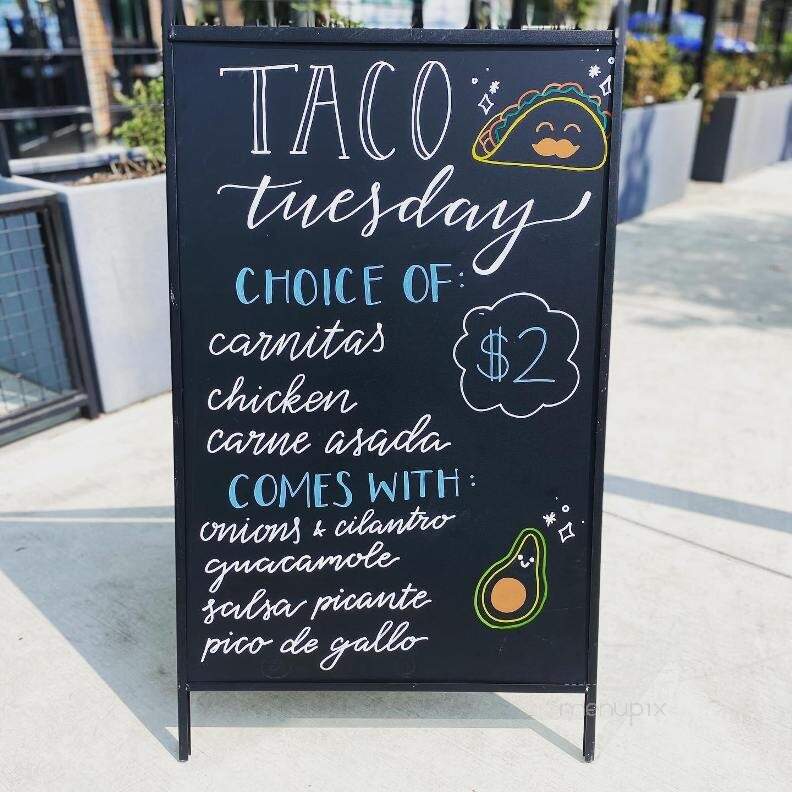 TACO
tuesday
CHOICE OF:
carnitas
$2
chicken
carne asada
COMES WITH:
onions & cilantro
guacamole
salsa picante
pico de gallo
menupix